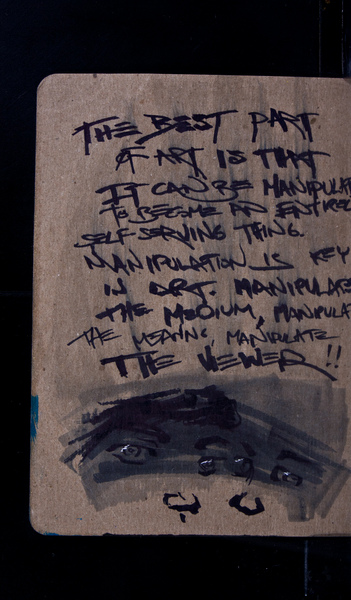 THE BEST PART
OF ART IS THAT
IT CAN BE MANIPULAT
TO BECOME AN ENTIREL
SELF SERVING THING.
MANIPULATION IS KEY
IN ART. MANIPULATE
THE MEDIUM, MANIPULA
THE MEANING, MANIPULATE
THE VIEWER!!